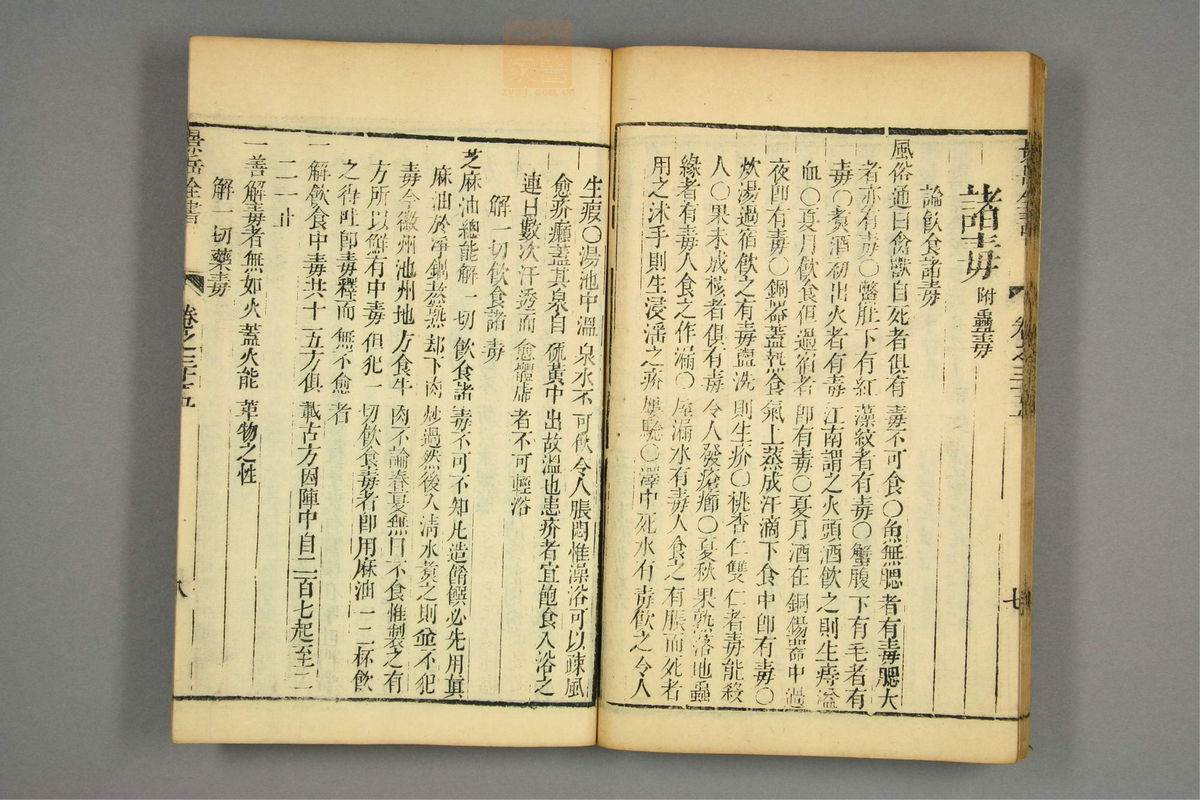 諸毒附蠱毒
論飲食諸毒
風俗通曰禽獸自死者俱有毒不可食○魚無腮者有毒腮大
者亦有毒○鱉肚下有紅藻紋者有毒○蟹腹下有毛者有
毒○煑酒初出火者有毒江南謂之火頭酒飲之則生痔溢
血○夏月飲食但過宿者即有毒○夏月酒在銅錫器中過
夜即有毒○銅器蓋熱食氣上蒸成汗滴下食中即有毒○
炊湯過宿飲之有毒盥洗則生疥○桃杏仁雙仁者毒能殺
人○果未成核者俱有毒令人發瘡癤○夏秋果熟落地蟲
緣者有毒人食之作漏○屋漏水有毒人食之有脹而死者
用之沐手則生浸淫之瘡屢驗○澤中死水有毒飲之令人
七
生瘕○湯池中溫泉水不可飲令人脹悶惟澡浴可以疎風
愈疥癬蓋其泉自硫黃中出故溫也患疥者宜飽食入浴之
連日數次汗透而愈體虛者不可輕浴
解一切飲食諸毒
芝麻油總能解一切飲食諸毒不可不知凡造餚饌必先用真
麻油於淨鍋熬熟却下肉炒過然後入清水煑之則並不犯
毒今徽州池州地方食牛肉不論春夏無日不食惟製之有
方所以鮮有中毒但犯一切飲食毒者即用麻油一二杯飲
之得吐即毒釋而無不愈者
一解飲食中毒共十五方俱載古方因陣中自二百七起至二
二一止
一善解毒者無如火蓋火能革物之性
解一切藥毒
景岳全書
卷之三十五
八